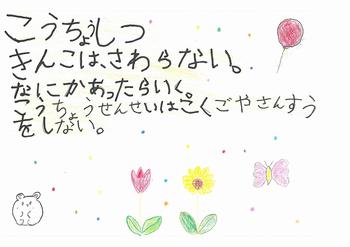 こうちょうしつ
きんこは、さわらない。
なにかあったらいく。
こうちょうせんせいはこくごやさんすう
をしない。